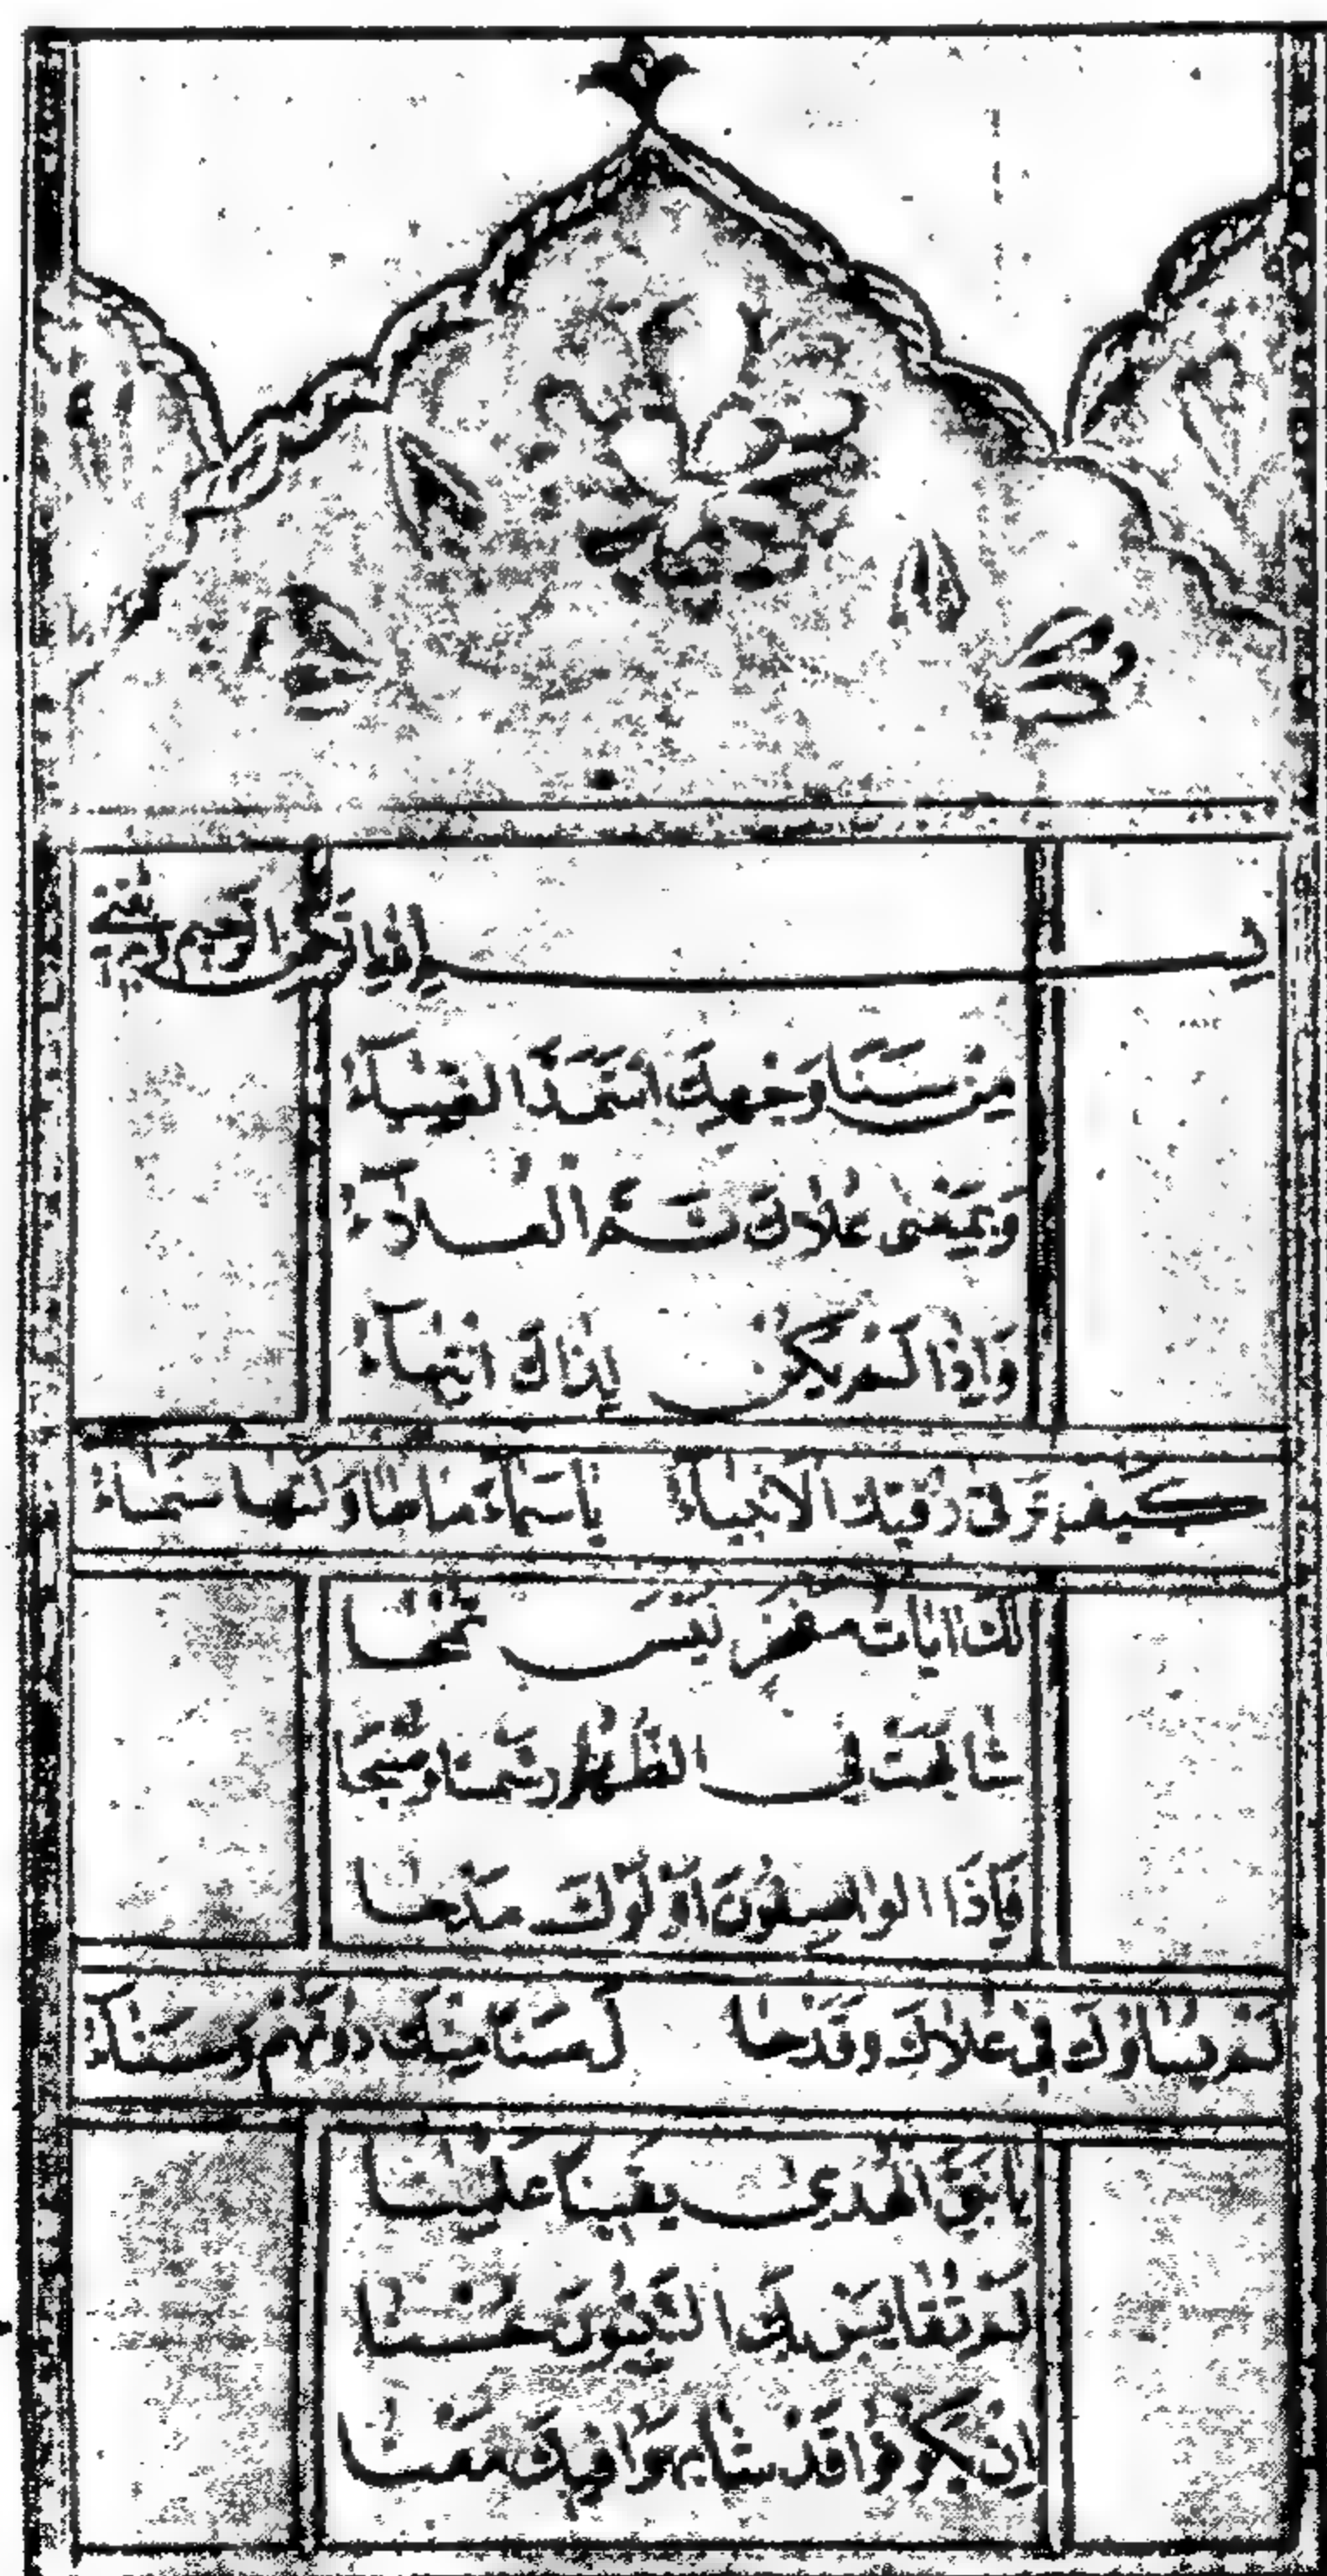 بسم الله الرحمن الرحيم
مِنْ سَنَا وَجْهِكَ اسْتَمَدَّ الضِّيَآءُ
وَبِمَعْنى عُلَاكَ تَمَّ الْعَلَآءُ
وَاِذَا لَمْ يَكُنْ لِذَاكَ انْتِهَآءُ
كَيْفَ تَرْقى رُقِيَّكَ الْاَنْبِيَاءُ يَا سَمَاءً مَا طَاوَلَتْهَا سَمَاءُ
لَكَ اٰيَاتُ مُعْجِزٍ لَيْسَ تُمْحٰى
شَابَهَتْ فِى الظُّهُورِ شَمْسًا وَصُبْحًا
فَاِذَا الْوَاصِفُونَ اَوْلَوْكَ مَدْحًا
لَمْ يُسَاوُوكَ فِى عُلَاكَ وَقَدْ حَا لَ سَنًا مِنْكَ دُونَهُمْ وَسَنَآءُ
يَا نَبِىَّ الْهُدٰى يَقِينًا عَلِمْنَا
لَمْ تُقَايَسْ بِكَ النَّبِيُّونَ حُسْنًا
اِنْ يَكُونُوا قَدْ شَابَهُوا فِيكَ مَعْنًا